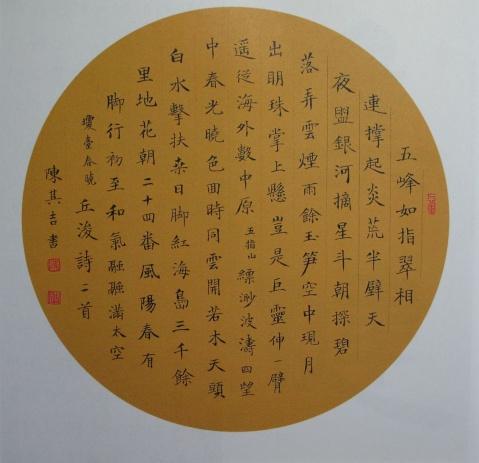 五峰如指翠相
連撑起炎荒半壁天
夜盥銀河摘星斗朝探碧
落弄雲煙雨餘玉笋空中現月
出明珠掌上懸豈是巨靈伸一臂
遥從海外數中原 五指山 縹渺波濤四望
中春光曉色面時同雲開若木天頭
白水擊扶桒日脚紅海島三千餘
里地花朝二十四番風陽春有
脚行初至和氣融融滿太空
瓊臺春曉 丘浚詩二首
陳其吉書